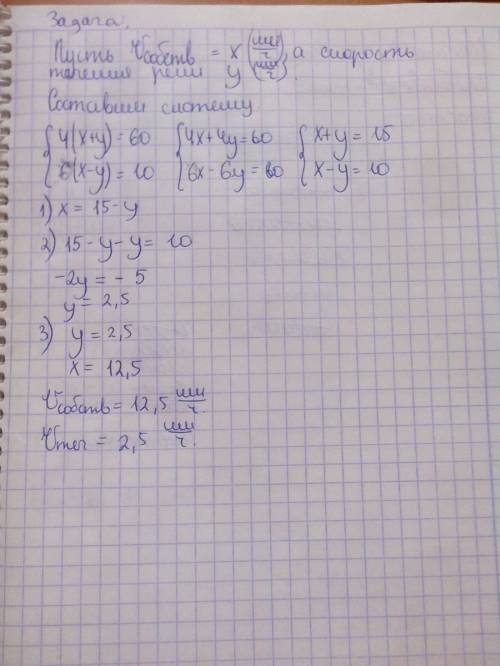 Задача.
Пусть Vсобств = x (км/ч), а скорость
течения реки y (км/ч).
Составим систему
{4(x+y)=60 {4x+4y=60 {x+y=15
{6(x-y)=10 {6x-6y=60 {x-y=10
1) x=15-y
2) 15-y-y=10
-2y=-5
y=2,5
3) y=2,5
x=12,5
Vсобств=12,5 км/ч.
Vтеч=2,5 км/ч.